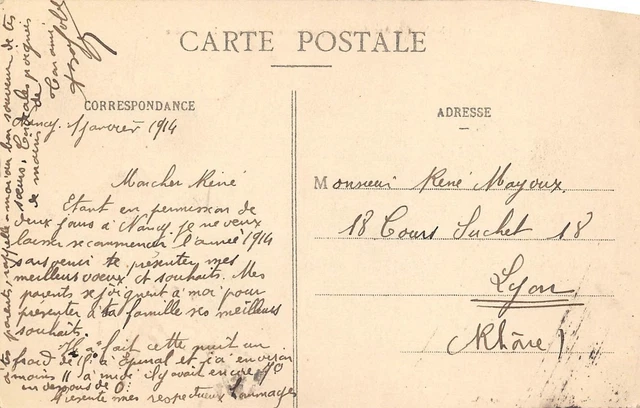 CARTE POSTALE
CORRESPONDANCE
Nancy. 1 janvier 1914
Mon cher René
Etant en permission de
deux jours à Nancy. je ne veux
laisser recommencer l'année 1914
sans venir te présenter mes
meilleurs voeux et souhaits. Mes
parents se joignent à moi pour
présenter à ta famille ses meilleurs
souhaits.
Il a fait cette nuit un
froid de à Epinal et ici environ
moins 11 à midi il y avait encore
en dessous de 0.
Présente mes respectueux hommages
à tes parents, rappelle-moi au bon souvenir de tes
soeurs.
de
Ton ami
ADRESSE
Monsieur René Mayoux.
18 Cours Suchet 18
Lyon
Rhône